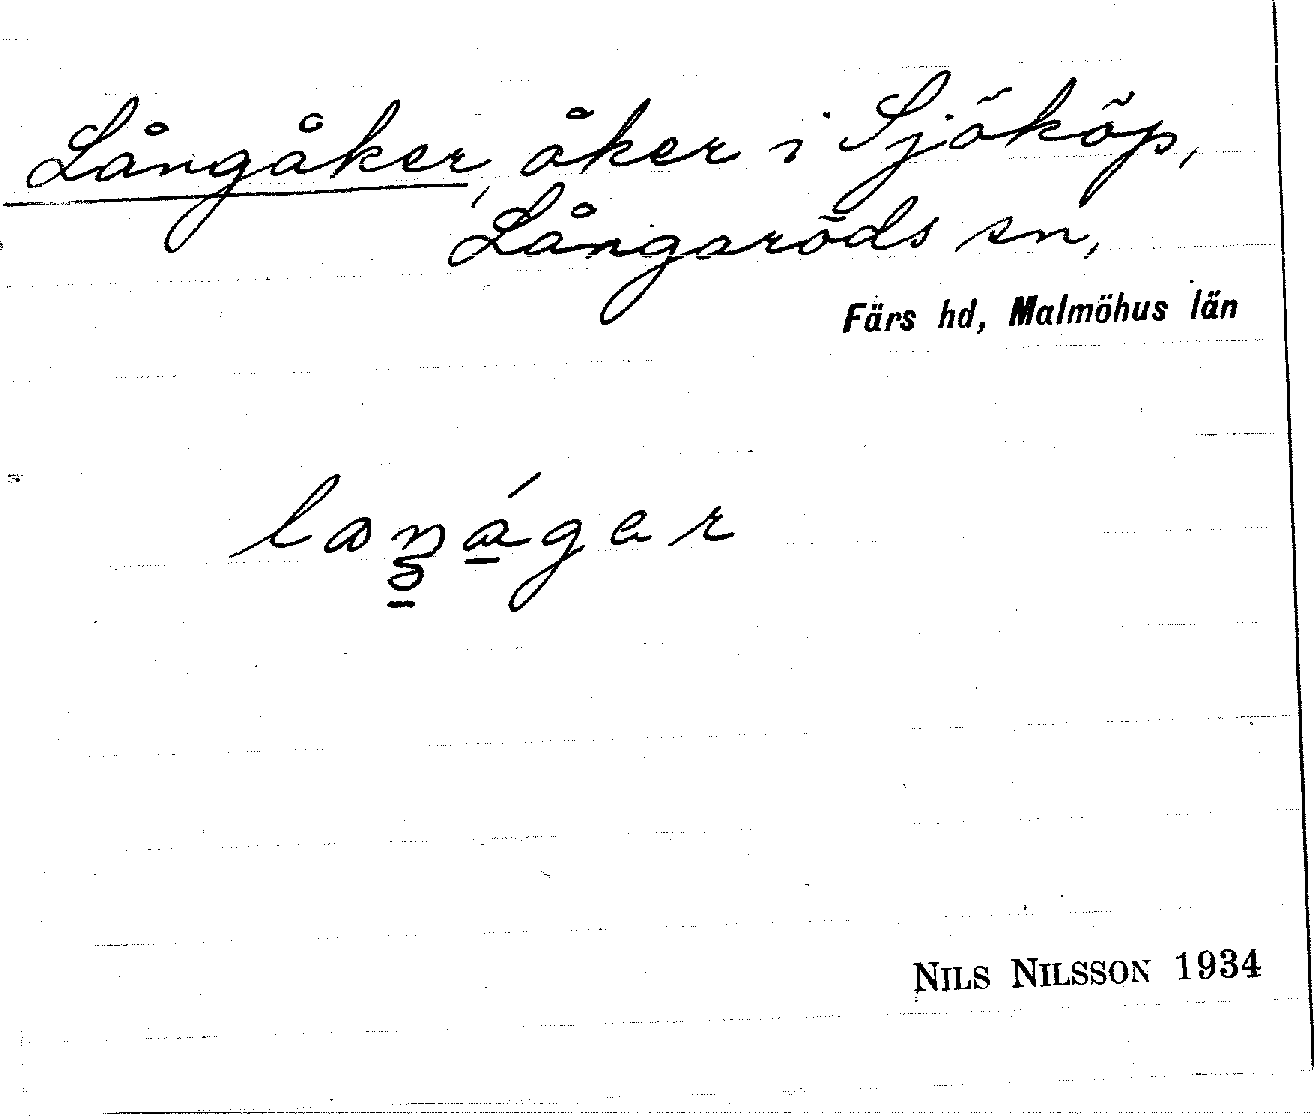 Långåker, åker i Sjököp,
Långaröds sn,
Färs hd, Malmöhus län
NILS NILSSON 1934